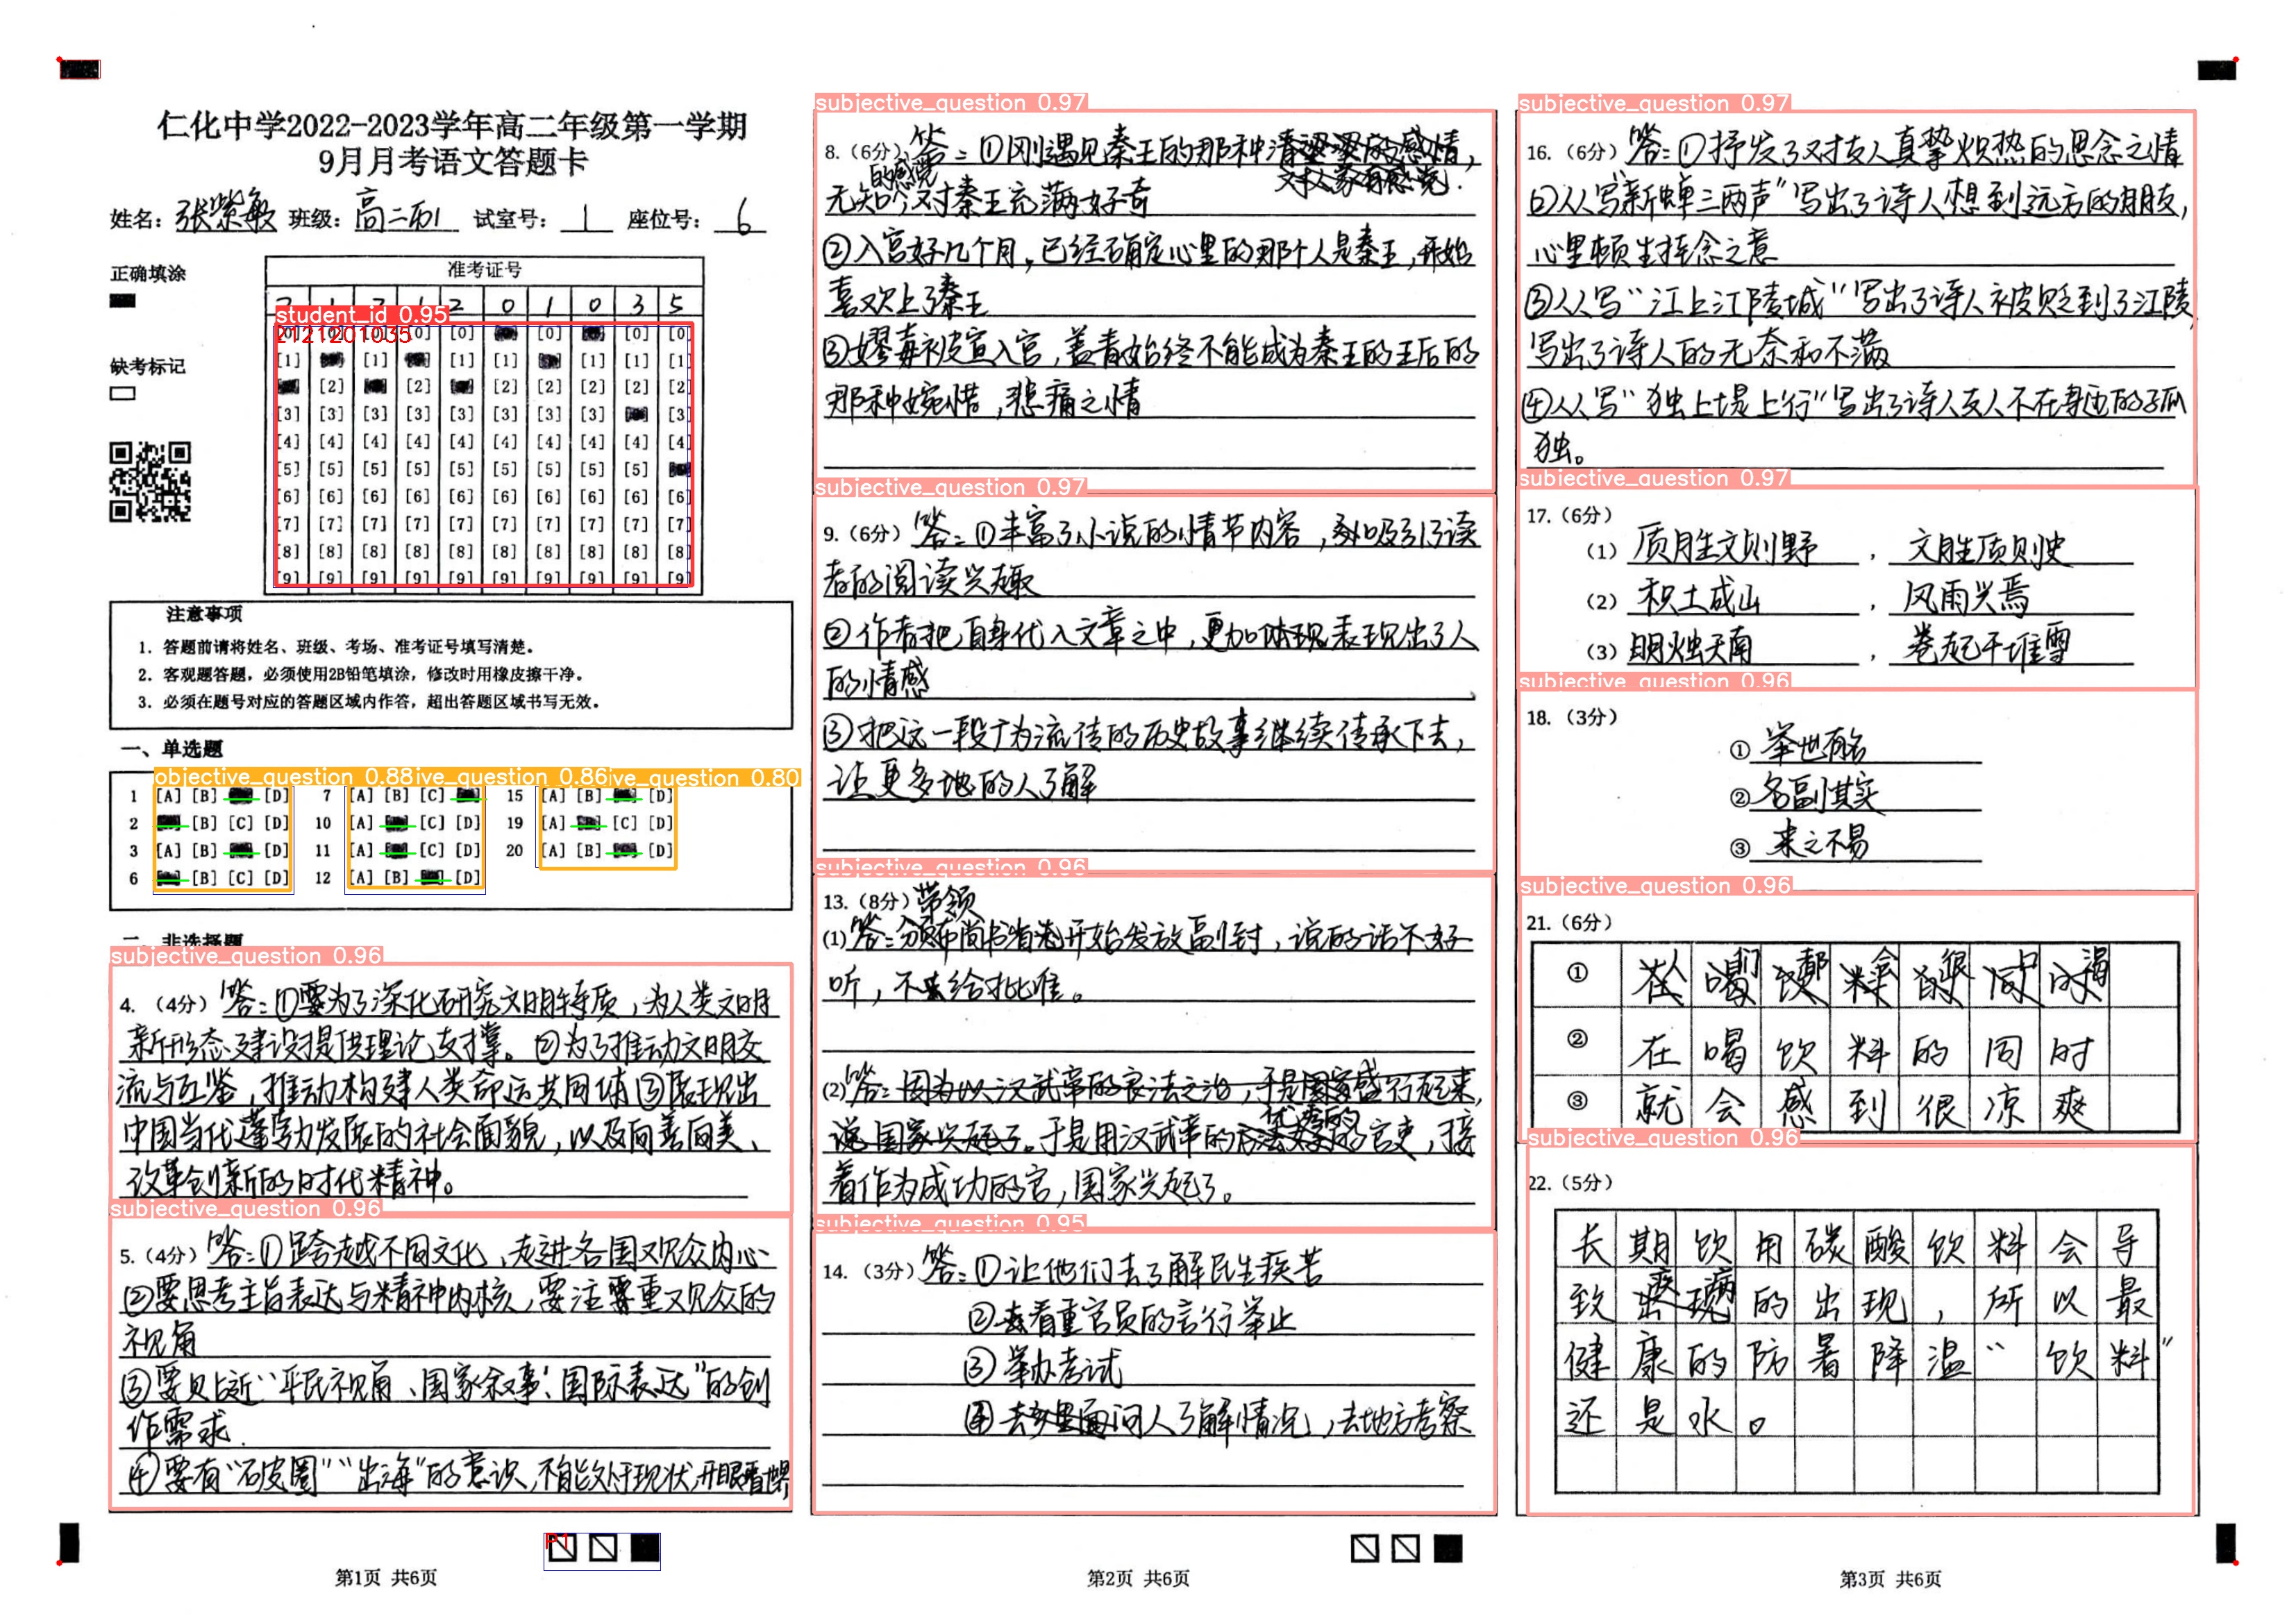 仁化中学2022-2023学年高二年级第一学期
9月月考语文答题卡
姓名：张紫敏 班级：高二(1) 试室号：1 座位号：6
正确填涂
准考证号
2 1 2 1 2 0 1 0 3 5
student_id 0.95
2121201035
缺考标记
[0] [0] [0] [0] [0] [0]
[1] [1] [1] [1] [1] [1] [1]
[2] [2] [2] [2] [2] [2] [2]
[3] [3] [3] [3] [3] [3] [3] [3] [3]
[4] [4] [4] [4] [4] [4] [4] [4] [4] [4]
[5] [5] [5] [5] [5] [5] [5] [5] [5]
[6] [6] [6] [6] [6] [6] [6] [6] [6] [6]
[7] [7] [7] [7] [7] [7] [7] [7] [7] [7]
[8] [8] [8] [8] [8] [8] [8] [8] [8] [8]
[9] [9] [9] [9] [9] [9] [9] [9] [9] [9]
注意事项
1. 答题前请将姓名、班级、考场、准考证号填写清楚。
2. 客观题答题，必须使用2B铅笔填涂，修改时用橡皮擦干净。
3. 必须在题号对应的答题区域内作答，超出答题区域书写无效。
一、单选题
objective_question 0.88 ive_question 0.86 ive_question 0.80
1 [A] [B] [D] 7 [A] [B] [C] 15 [A] [B] [D]
2 [B] [C] [D] 10 [A] [C] [D] 19 [A] [C] [D]
3 [A] [B] [D] 11 [A] [C] [D] 20 [A] [B] [D]
6 [B] [C] [D] 12 [A] [B] [D]
二、非选择题
subjective_question 0.96
4. （4分）答：①要为了深化研究文明特质，为人类文明
新形态建设提供理论支撑。②为了推动文明交
流与互鉴，推动构建人类命运共同体③展现出
中国当代蓬勃发展的社会面貌，以及向善向美、
改革创新的时代精神。
subjective_question 0.96
5.（4分）答：①跨越不同文化、走进各国观众内心
②要思考主旨表达与精神内核，要注重观众的
视角
③要贴近“平民视角、国家叙事、国际表达”的创
作需求.
④要有“破圈”“出海”的意识，不能处于现状，开眼看世界
P1
第1页 共6页
subjective_question 0.97
8.（6分）答：①刚遇见秦王的那种
的感觉
无知，对秦王充满好奇
②入宫好几个月，已经确定心里的那个人是秦王，开始
喜欢上了秦王
③嫪毐被宣入宫，盖青始终不能成为秦王的王后的
那种惋惜，悲痛之情
subjective_question 0.97
9.（6分）答：①丰富了小说的情节内容，吸引了读
者的阅读兴趣
②作者把自身代入文章之中，更加体现表现出了人
的情感
③把这一段广为流传的历史故事继续传承下去，
让更多地的人了解
subjective_question 0.96
13.（8分）带领
(1)答：颁布尚书省开始发放副封，说的话不好
听，不给批准。
(2)答：因为以汉武帝的良法之治，于是国家盛行起来，
国家兴起了。于是用汉武帝的优秀的官吏，接
着作为成功的官，国家兴起了。
subjective_question 0.95
14.（3分）答：①让他们去了解民生疾苦
②去看重官员的言行举止
③举办考试
④问人了解情况，去地方考察
第2页 共6页
subjective_question 0.97
16.（6分）答：①抒发了对友人真挚炽热的思念之情
②从写新蝉三两声”写出了诗人想到远方的朋友，
心里顿生挂念之意
③从写“江上江陵城”写出了诗人被贬到了江陵，
写出了诗人的无奈和不满
④从写“独上堤上行”写出了诗人友人不在身边的孤
独。
subjective_question 0.97
17.（6分）
（1）质胜文则野 ，文胜质则史
（2）积土成山 ，风雨兴焉
（3）明烛天南 ，卷起千堆雪
subjective_question 0.96
18.（3分）
①举世闻名
②名副其实
③来之不易
subjective_question 0.96
21.（6分）
①
②在喝饮料的同时
③就会感到很凉爽
subjective_question 0.96
22.（5分）
长期饮用碳酸饮料会导
致的出现，所以最
健康的防暑降温“饮料”
还是水。
第3页 共6页